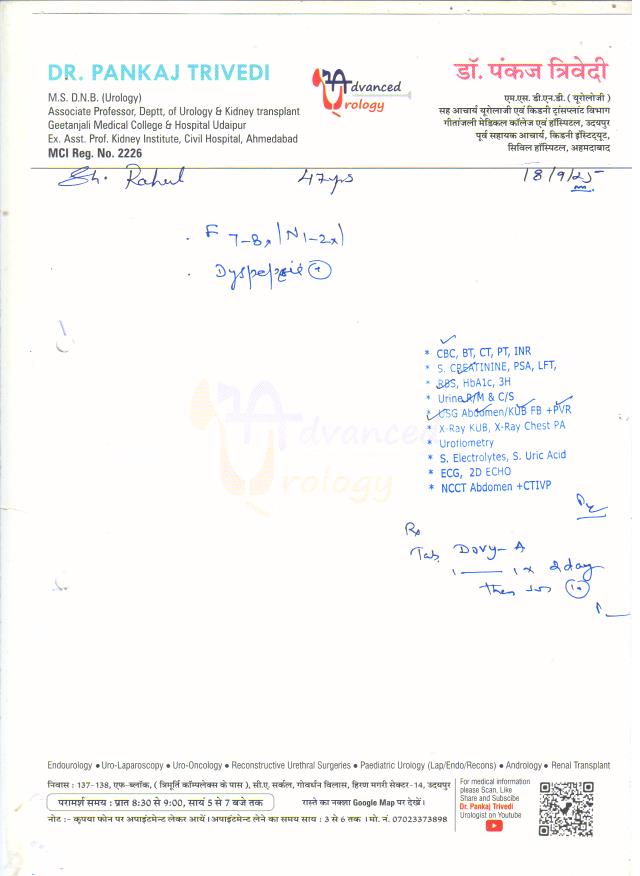 DR. PANKAJ TRIVEDI
M.S. D.N.B. (Urology)
Associate Professor, Deptt, of Urology & Kidney transplant
Geetanjali Medical College & Hospital Udaipur
Ex. Asst. Prof. Kidney Institute, Civil Hospital, Ahmedabad
MCI Reg. No. 2226
Advanced
Urology
डॉ. पंकज त्रिवेदी
एम.एस. डी.एन.बी. ( यूरोलोजी )
सह आचार्य यूरोलाजी एवं किडनी ट्रांसप्लांट विभाग
गीतांजली मेडिकल कॉलेज एवं हॉस्पिटल, उदयपुर
पूर्व सहायक आचार्य, किडनी इंस्टिट्यूट,
सिविल हॉस्पिटल, अहमदाबाद
Sh. Rahul 47yrs 18/9/25
F 7-8x / N 1-2x
Dyspepsia +
* CBC, BT, CT, PT, INR
* S. CREATININE, PSA, LFT,
* RBS, HbA1c, 3H
* Urine R/M & C/S
* USG Abdomen/KUB FB +PVR
* X-Ray KUB, X-Ray Chest PA
* Urotlometry
* S. Electrolytes, S. Uric Acid
* ECG, 2D ECHO
* NCCT Abdomen +CTIVP
Advanced
Urology
Rx
Tab. Dovy-A
1 — 1 x 2day
then
Endourology ● Uro-Laparoscopy ● Uro-Oncology ● Reconstructive Urethral Surgeries ● Paediatric Urology (Lap/Endo/Recons) ● Andrology ● Renal Transplant
निवास : 137-138, एफ-ब्लॉक, ( त्रिमूर्ति कॉम्पलेक्स के पास ), सी.ए. सर्कल, गोवर्धन विलास, हिरण मगरी सेक्टर-14, उदयपुर
परामर्श समय : प्रात 8:30 से 9:00, सायं 5 से 7 बजे तक रास्ते का नक्शा Google Map पर देखें।
नोट :- कृपया फोन पर अपाइंटमेन्ट लेकर आयें। अपाइंटमेन्ट लेने का समय साय : 3 से 6 तक । मो. नं. 07023373898
For medical information
please Scan, Like
Share and Subscibe
Dr. Pankaj Trivedi
Urologist on Youtube